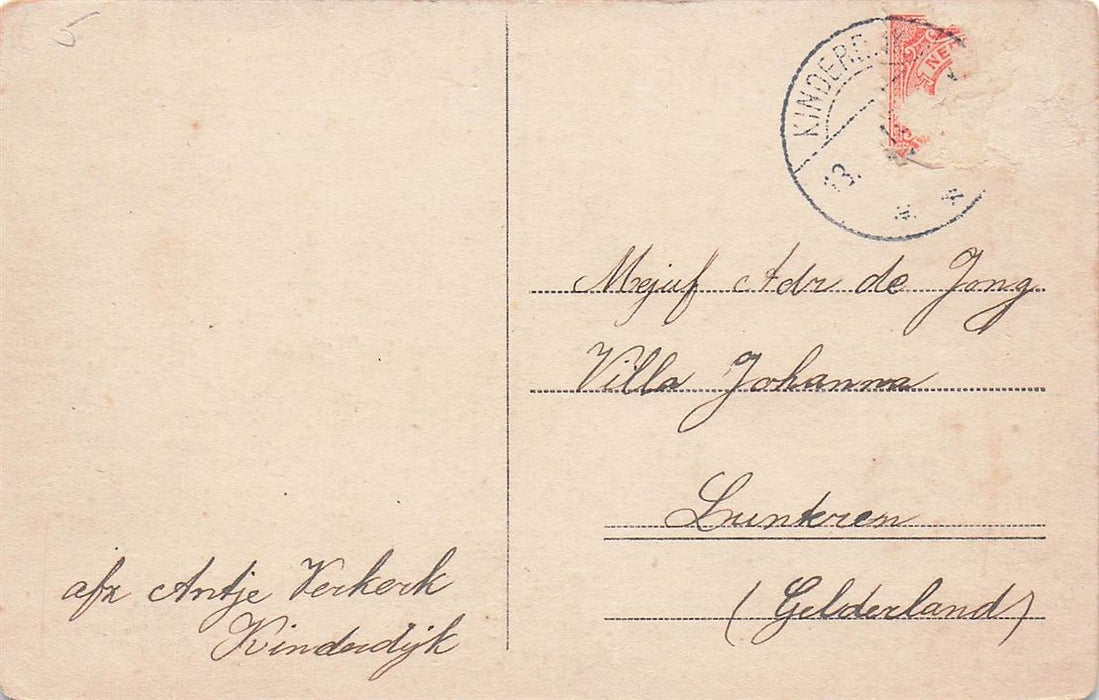 5
KINDERD
NE
13.
Mejuf Adr de Jong
Villa Johanna
Lunteren
(Gelderland)
afz Antje Verkerk
Kinderdijk